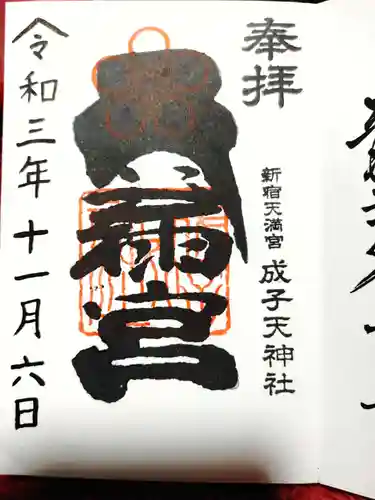 奉拝
新宿天満宮 成子天神社
天満宮
令和三年十一月六日